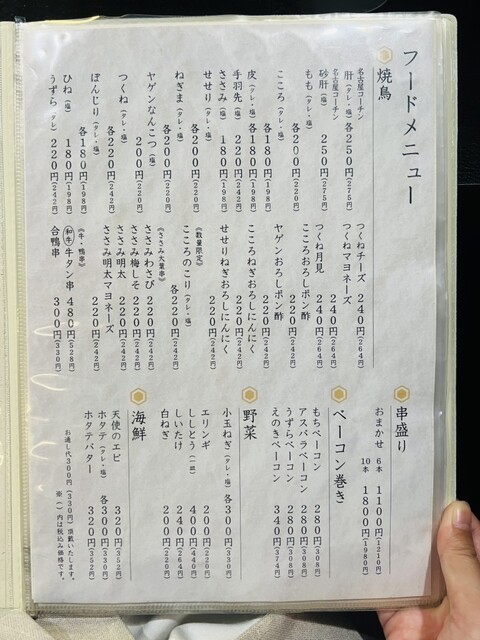 フードメニュー
焼鳥
名古屋コーチン
肝(タレ・塩) 各250円(275)
名古屋コーチン
砂肝(塩) 250円(275)
もも(タレ・塩) 各200円(220)
こころ(タレ・塩) 各180円(198)
皮(タレ・塩) 各180円(198)
手羽先(塩) 220円(242)
ささみ(塩) 180円(198)
せせり(タレ・塩) 各200円(220)
ねぎま(タレ・塩) 各200円(220)
ヤゲンなんこつ(塩) 200円(220)
つくね(タレ・塩) 各220円(242)
ぼんじり(タレ・塩) 各180円(198)
ひね(塩) 180円(198)
うずら(タレ) 220円(242)
つくねチーズ 240円(264)
つくねマヨネーズ 240円(264)
つくね月見 240円(264)
こころおろしポン酢 220円(242)
ヤゲンおろしポン酢 220円(242)
こころねぎおろしにんにく 220円(242)
せせりねぎおろしにんにく 220円(242)
《数量限定》
こころのこり(タレ・塩) 各220円(242)
《ささみ大葉串》
ささみわさび 220円(242)
ささみ梅しそ 220円(242)
ささみ明太 220円(242)
ささみ明太マヨネーズ 220円(242)
《牛・鴨串》
(和牛)牛タン串 480円(528)
合鴨串 300円(330)
串盛り
おまかせ 6本 1100円(1210)
10本 1800円(1980)
ベーコン巻き
もちベーコン 280円(308)
アスパラベーコン 280円(308)
うずらベーコン 280円(308)
えのきベーコン 340円(374)
野菜
小玉ねぎ(タレ・塩) 各300円(330)
エリンギ 200円(220)
ししとう(一皿) 400円(440)
しいたけ 240円(264)
白ねぎ 200円(220)
海鮮
天使のエビ 320円(352)
ホタテ(タレ・塩) 各300円(330)
ホタテバター 320円(352)
お通し代300円(330円)頂戴いたします。
※( )内は税込み価格です。